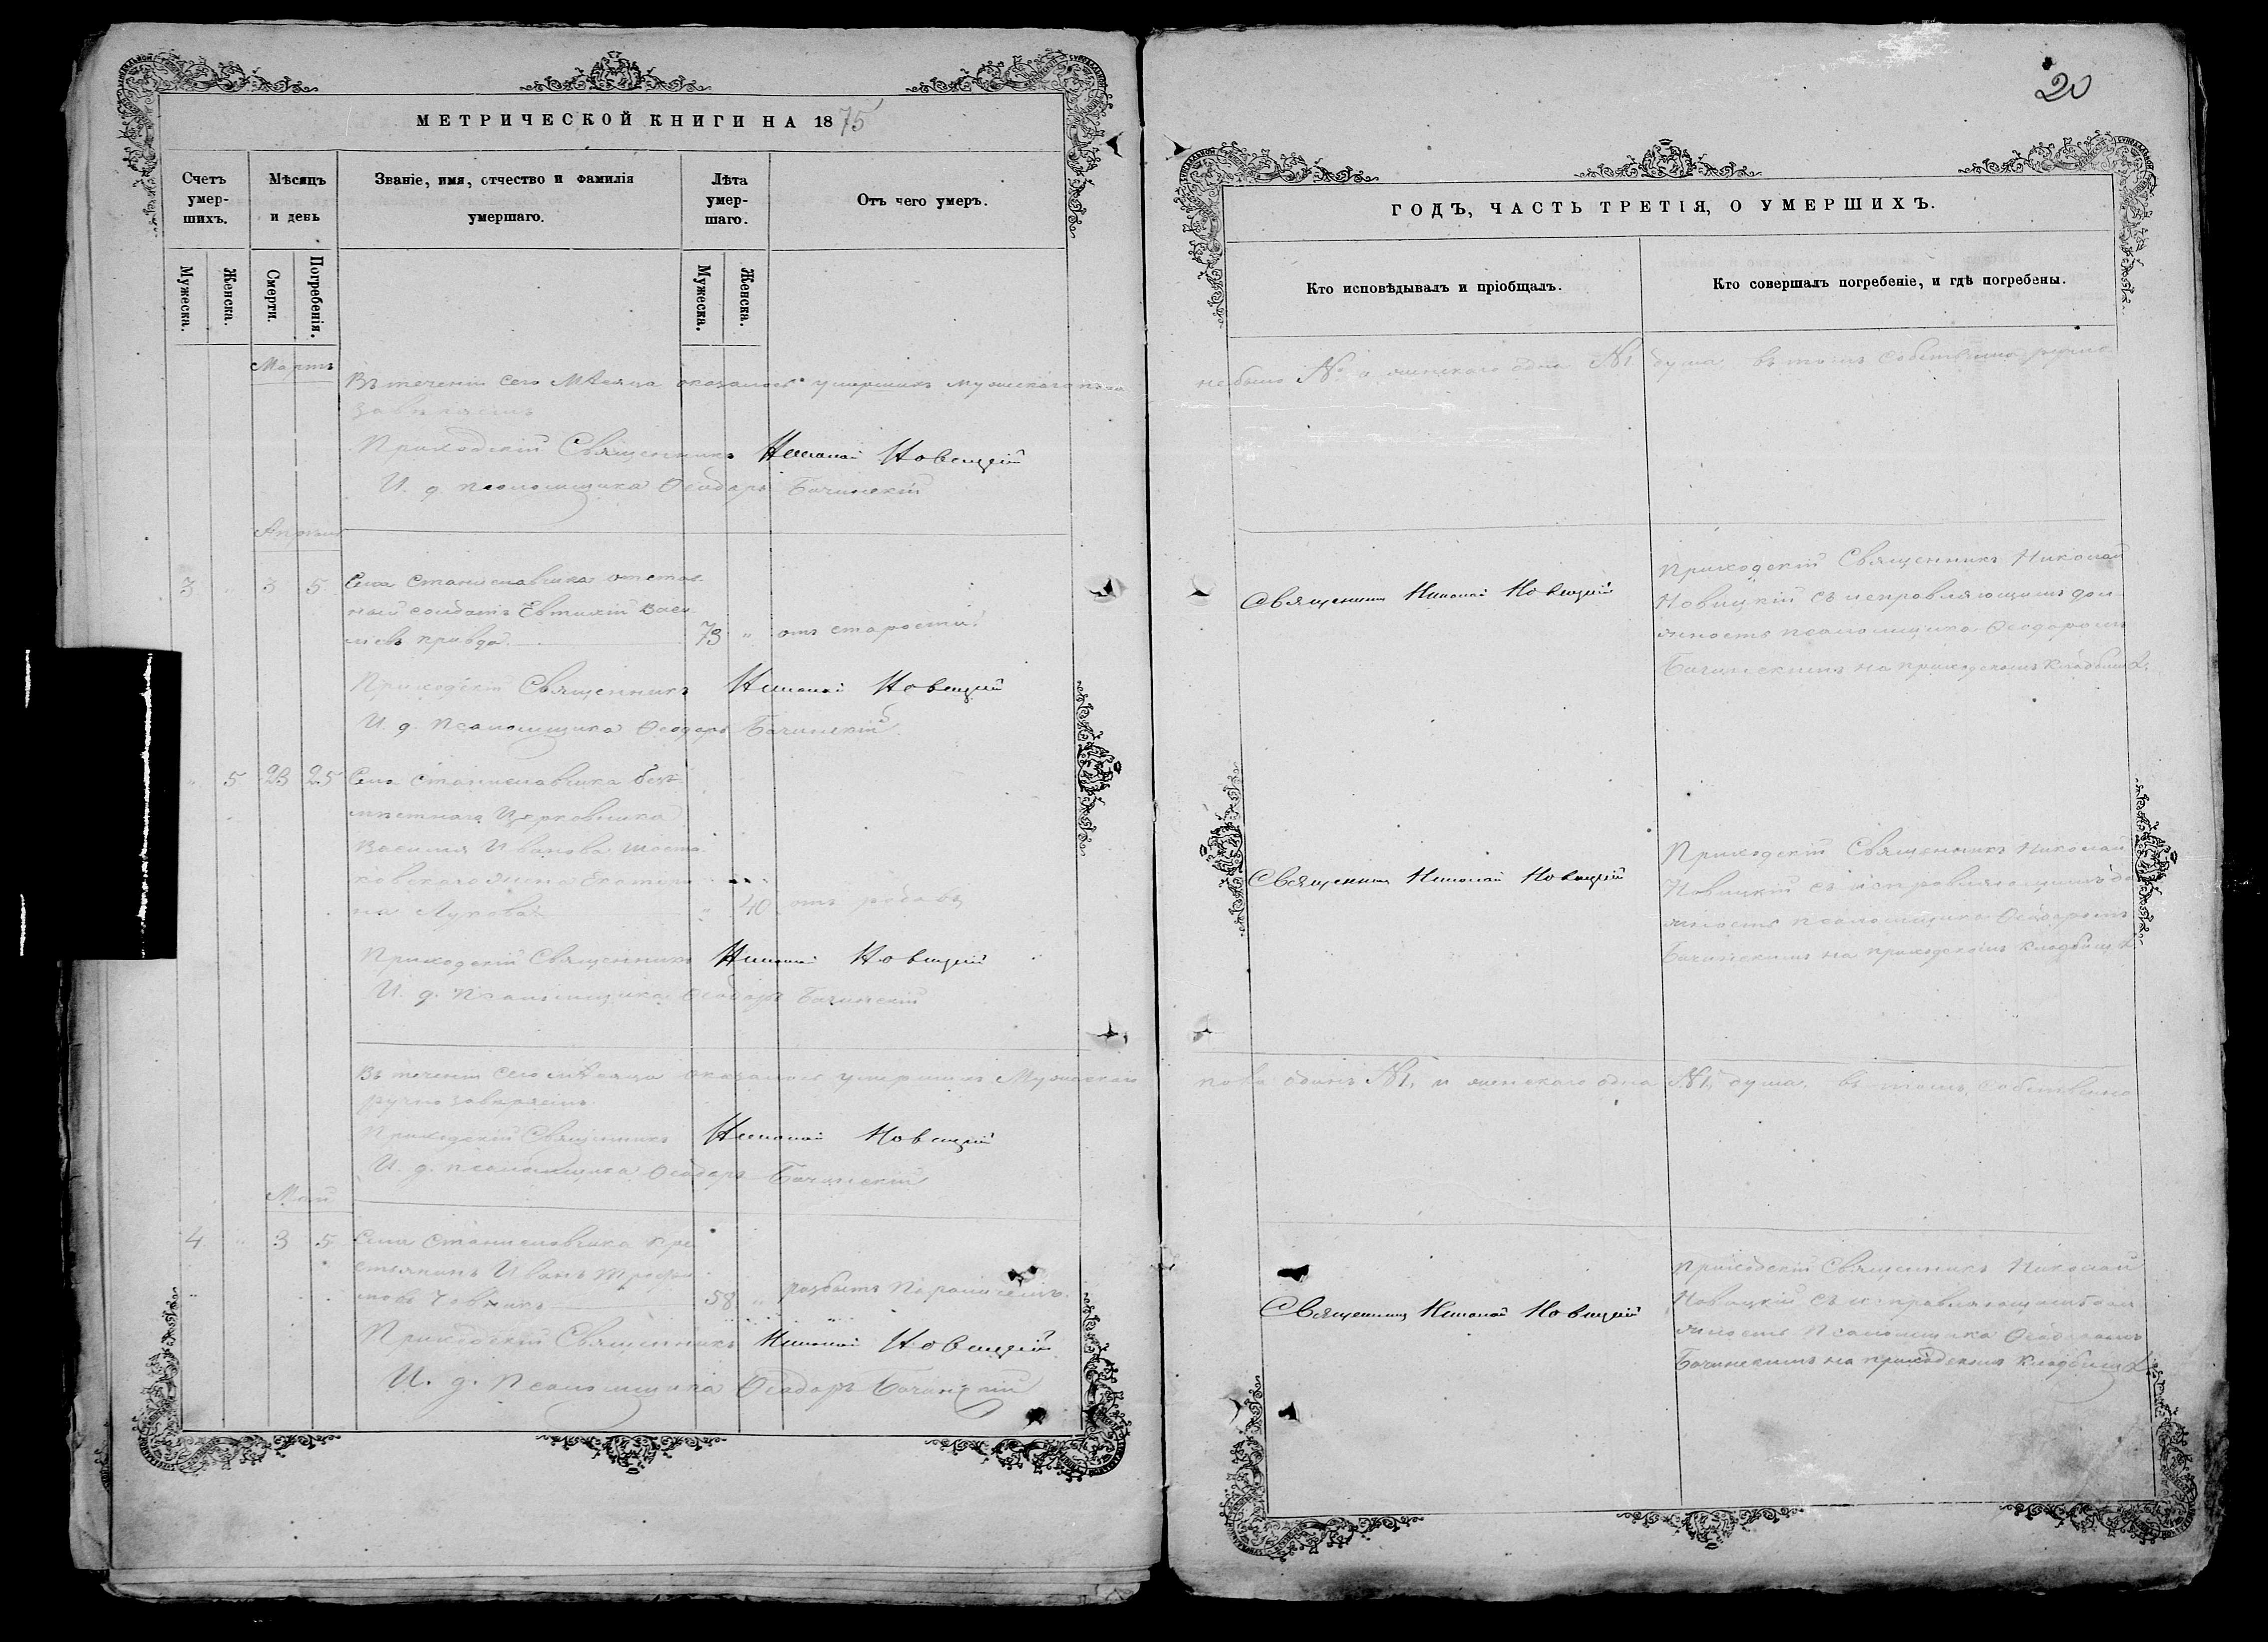 МЕТРИЧЕСКОЙ КНИГИ НА 1875
Счетъ умер-шихъ.
Мѣсяцъ и день
Званіе, имя, отчество и фамилія умершаго.
Лѣта умер-шаго.
Отъ чего умеръ.
Мужеска.
Женска.
Смерти.
Погребенія.
Мужеска.
Женска.
Мартъ
Въ теченіи сего мѣсяца оказалось умершихъ мужескаго пола
Приходскій Священникъ Николай Новицкій
И. д. псаломщика Ѳеодоръ Бачинскій
Апрѣль
3 " 3 5 Села Станиславчика отстав-
ный солдатъ Евтихій Васи-
льевъ Кривда 73 " отъ старости.
Приходскій Священникъ Николай Новицкій
И. д. Псаломщика Ѳеодоръ Бачинскій
" 5 23 25 Села Станиславчика
Василія Иванова
жена Екатери-
на Лукова " 40 отъ родовъ
Приходскій Священникъ Николай Новицкій
И. д. Псаломщика Ѳеодоръ Бачинскій
Въ теченіи сего мѣсяца оказалось умершихъ Мужескаго
Приходскій Священникъ Николай Новицкій
И. д. псаломщика Ѳеодоръ Бачинскій
Май
4 " 3 5 Села Станиславчика кре-
стьянинъ Иванъ
58 " разбитъ параличемъ.
Приходскій Священникъ Николай Новицкій
И. д. Псаломщика Ѳеодоръ Бачинскій
20
ГОДЪ, ЧАСТЬ ТРЕТІЯ, О УМЕРШИХЪ.
Кто исповѣдывалъ и пріобщалъ.
Кто совершалъ погребеніе, и гдѣ погребены.
не было № а женскаго одна №1 душа, въ томъ собственно ручно
Священникъ Николай Новицкій
Приходскій Священникъ Николай
Новицкій съ исправляющимъ дол-
жность псаломщика Ѳеодоромъ
Бачинскимъ на приходскомъ кладбищѣ.
Священникъ Николай Новицкій
Приходскій Священникъ Николай
Новицкій съ исправляющимъ до
жность псаломщика Ѳеодоромъ
Бачинскимъ на приходскомъ кладбищѣ
пола одинъ №1, и женскаго одна №1 душа, въ томъ собственно
Священникъ Николай Новицкій
Приходскій Священникъ Николай
Новицкій съ исправляющимъ дол
жность Псаломщика Ѳеодоромъ
Бачинскимъ на приходскомъ кладбищѣ